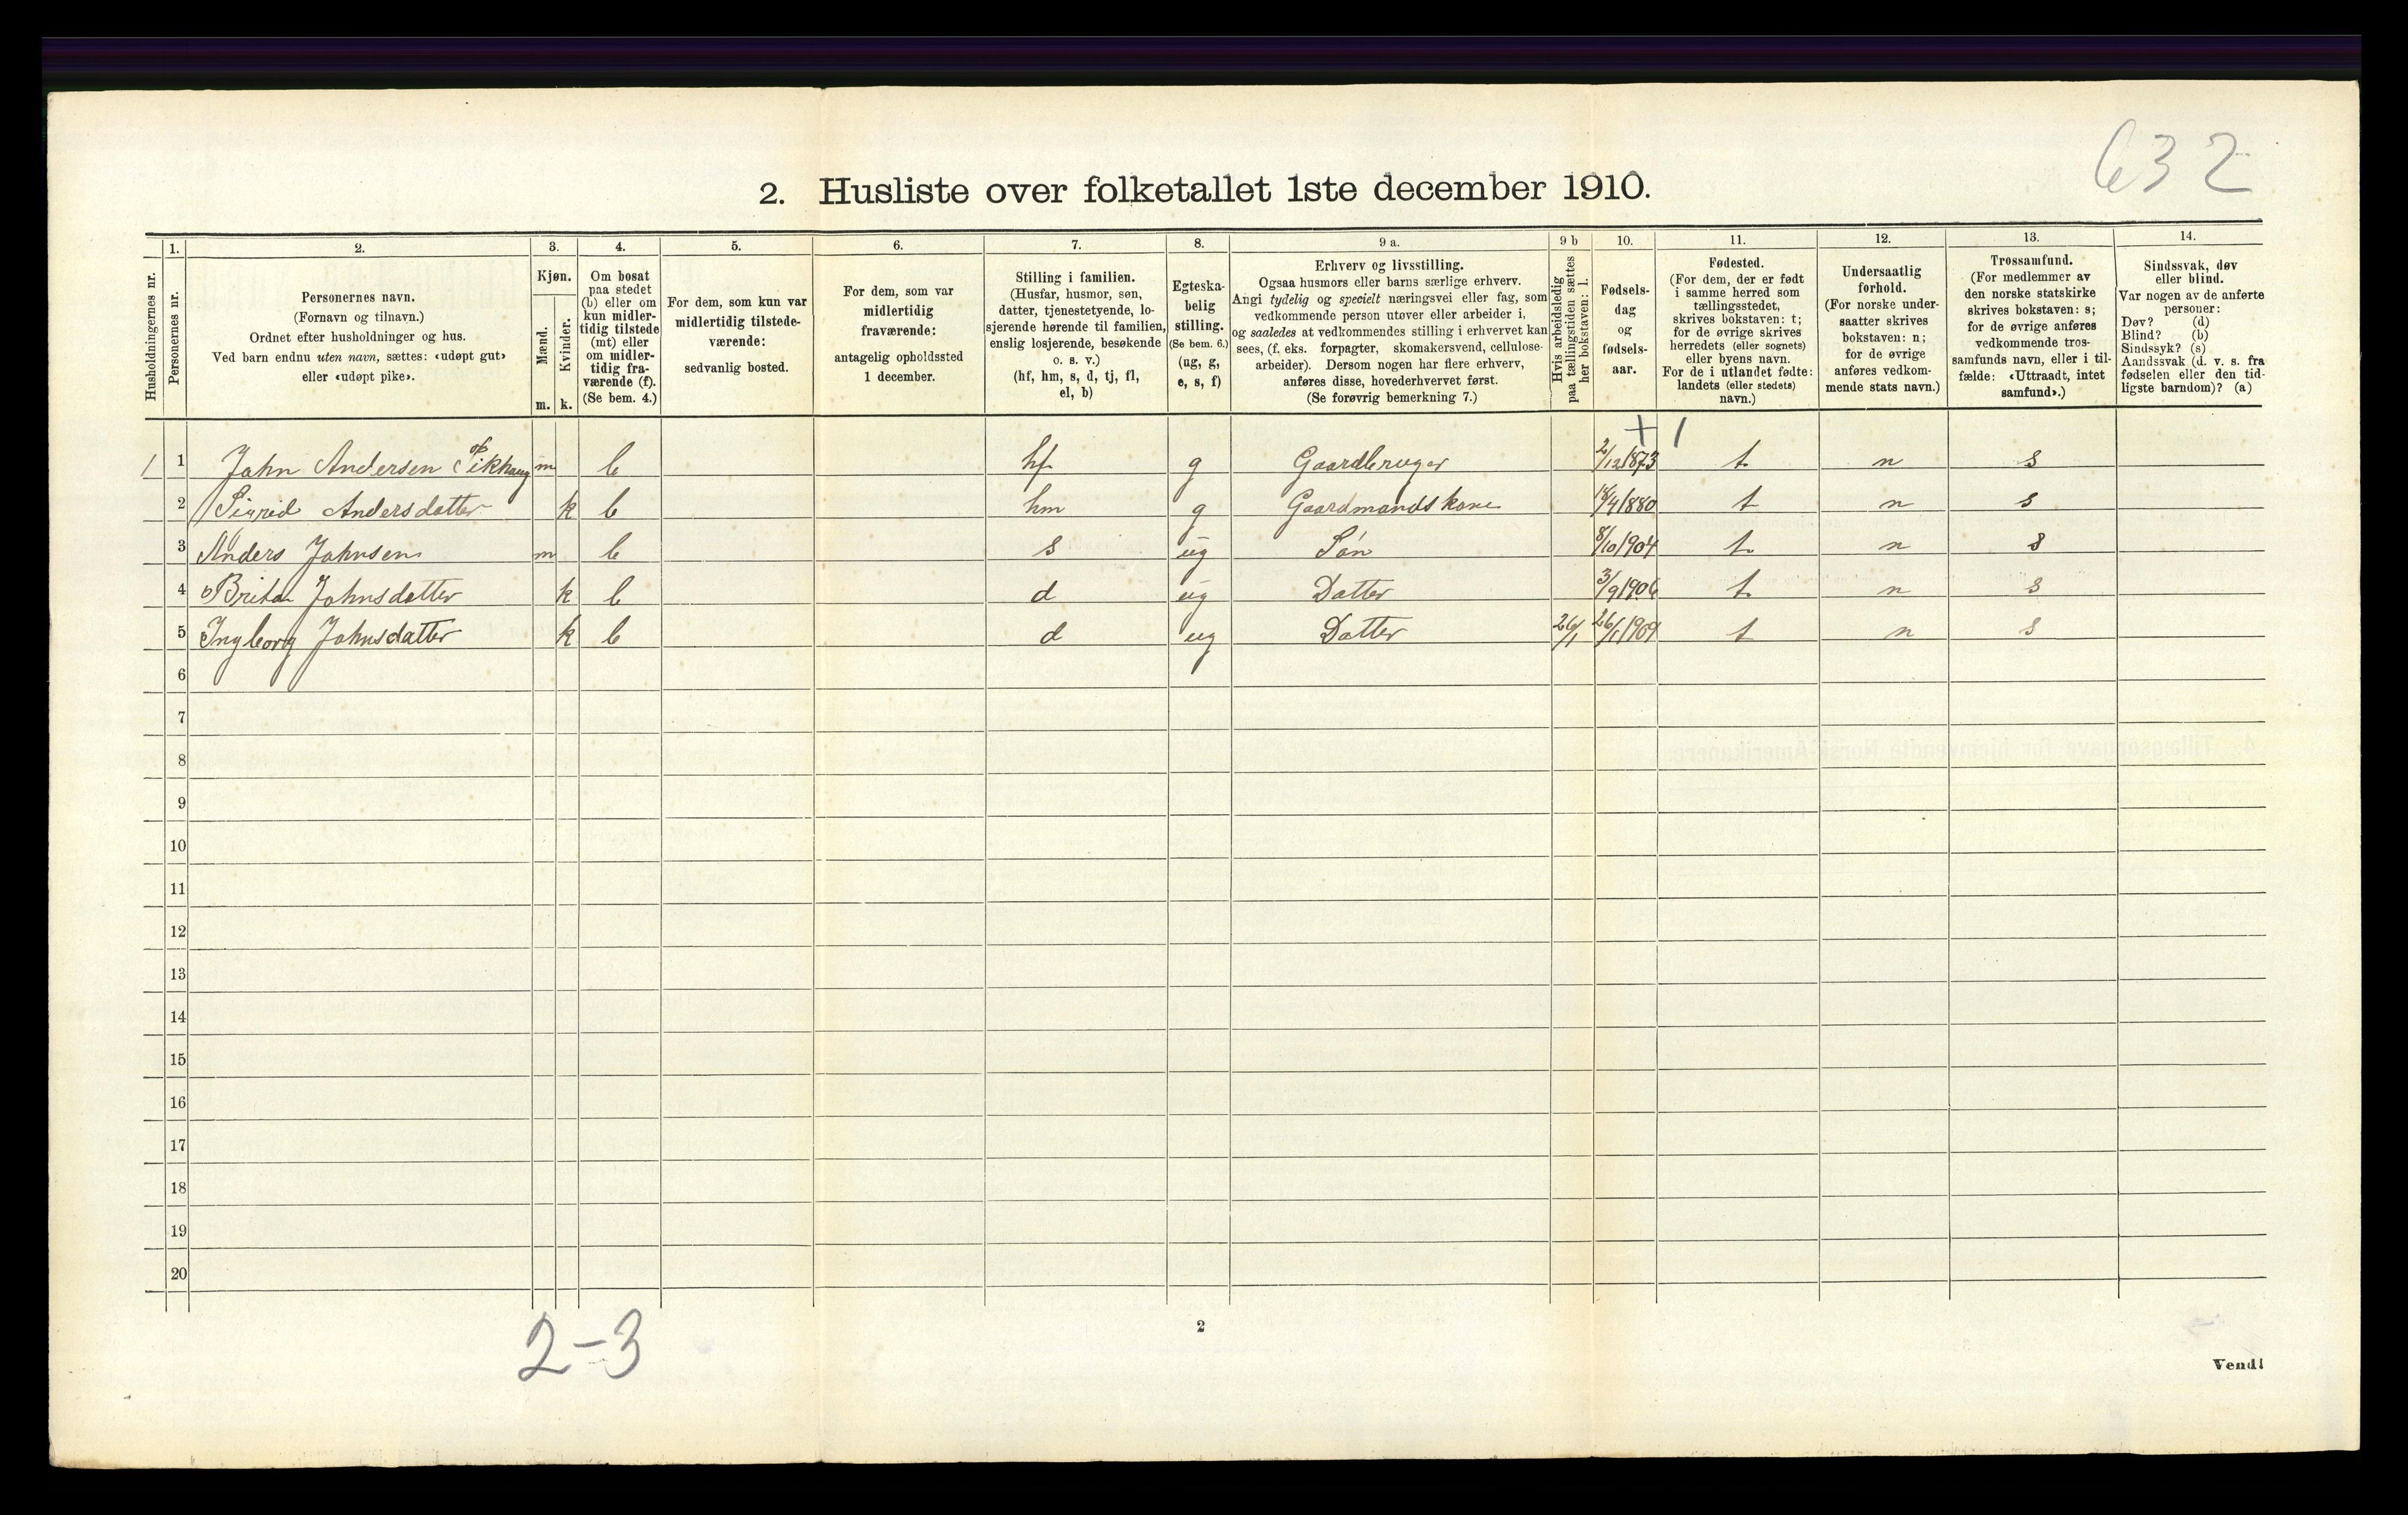 632
2. Husliste over folketallet 1ste december 1910.
Husholdningernes nr.
1. Personernes nr.
2. Personernes navn.
(Fornavn og tilnavn.)
Ordnet efter husholdninger og hus.
Ved barn endnu uten navn, sættes: «udøpt gut»
eller «udøpt pike».
3. Kjøn.
Mænd. m.
Kvinder. k.
4. Om bosat
paa stedet
(b) eller om
kun midler-
tidig tilstede
(mt) eller
om midler-
tidig fra-
værende (f).
(Se bem. 4.)
5. For dem, som kun var
midlertidig tilstede-
værende:
sedvanlig bosted.
6. For dem, som var
midlertidig
fraværende:
antagelig opholdssted
1 december.
7. Stilling i familien.
(Husfar, husmor, søn,
datter, tjenestetyende, lo-
sjerende hørende til familien,
enslig losjerende, besøkende
o. s. v.)
(hf, hm, s, d, tj, fl,
el, b)
8. Egteska-
belig
stilling.
(Se bem. 6.)
(ug, g,
e, s, f)
9 a. Erhverv og livsstilling.
Ogsaa husmors eller barns særlige erhverv.
Angi tydelig og specielt næringsvei eller fag, som
vedkommende person utøver eller arbeider i,
og saaledes at vedkommendes stilling i erhvervet kan
sees, (f. eks. forpagter, skomakersvend, cellulose-
arbeider). Dersom nogen har flere erhverv,
anføres disse, hovederhvervet først.
(Se forøvrig bemerkning 7.)
9 b Hvis arbeidsledig
paa tællingstiden sættes
her bokstaven: l.
10. Fødsels-
dag
og
fødsels-
aar.
11. Fødested.
(For dem, der er født
i samme herred som
tællingsstedet,
skrives bokstaven: t;
for de øvrige skrives
herredets (eller sognets)
eller byens navn.
For de i utlandet fødte:
landets (eller stedets)
navn.)
12. Undersaatlig
forhold.
(For norske under-
saatter skrives
bokstaven: n;
for de øvrige
anføres vedkom-
mende stats navn.)
13. Trossamfund.
(For medlemmer av
den norske statskirke
skrives bokstaven: s;
for de øvrige anføres
vedkommende tros-
samfunds navn, eller i til-
fælde: «Uttraadt, intet
samfund».)
14. Sindssvak, døv
eller blind.
Var nogen av de anførte
personer:
Døv? (d)
Blind? (b)
Sindssyk? (s)
Aandssvak (d. v. s. fra
fødselen eller den tid-
ligste barndom)? (a)
+ 1
1 1 John Andersen m b hf g Gaardbruger 2/12 1873 t n s
2 Sigrid Andersdatter k b hm g Gaardmandskone 18/4 1880 t n s
3 Anders Johnsen m b s ug Søn 8/10 1904 t n s
4 Brita Johnsdatter k b d ug Datter 3/9 1906 t n s
5 Ingeborg Johnsdatter k b d ug Datter 26/1 26/1 1909 t n s
6
7
8
9
10
11
12
13
14
15
16
17
18
19
20
2-3
2
Vend!